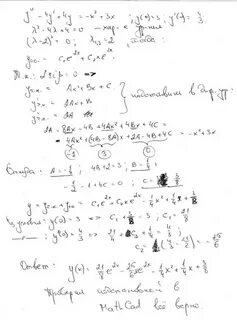 y'' - 4y' + 4y = -x² + 3x ; y(0) = 3; y'(0) = 4/3
λ² - 4λ + 4 = 0 - хар. е ур-ние
(λ-2)² = 0 ; λ₁,₂ = 2
yо.о. = C₁e²ˣ + C₂xe²ˣ
=>
yч.н. = Ax² + Bx + C
y'ч.н. = 2Ax + B
y''ч.н. = 2A
подставим в дир. ур:
2A - 8Ax - 4B + 4Ax² + 4Bx + 4C =
= 4Ax² + (4B - 8A)x + 2A - 4B + 4C = -x² + 3x
-1 3 0
Откуда: A = -1/4 ; 4B + 2 = 3; B = 1/4;
-1/2 - 1 + 4C = 0 ; C = 3/8
y = yо.о. + yч.н. = C₁e²ˣ + C₂xe²ˣ - 1/4x² + 1/4x + 3/8
y(0) = 3 => C₁ + 3/8 = 3; C₁ = 21/8
y'(0) = 4/3 => 21/4 + C₂ + 1/4 = 4/3
Ответ: y(x) = 21/8 e²ˣ - 25/6 xe²ˣ - 1/4x² + 1/4x + 3/8
Проверил подстановкой в
MathCad всё верно.